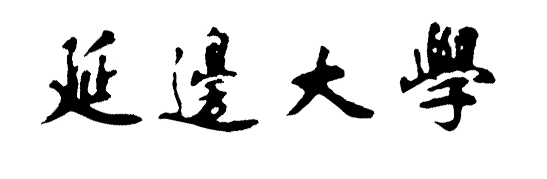 延邊大學